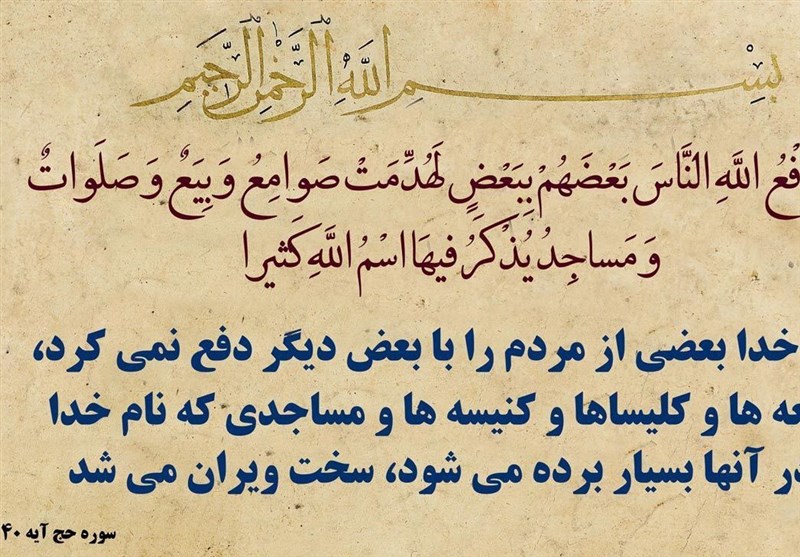 بِسْمِ اللَّهِ الرَّحْمَنِ الرَّحِيمِ
فْعُ اللَّهِ النَّاسَ بَعْضَهُمْ بِبَعْضٍ لَهُدِّمَتْ صَوامِعُ وَ بِيَعٌ وَ صَلَواتٌ
وَ مَساجِدُ يُذْكَرُ فيهَا اسْمُ اللَّهِ كَثيرا
خدا بعضی از مردم را با بعض دیگر دفع نمی کرد،
عه ها و کلیساها و کنیسه ها و مساجدی که نام خدا
در آنها بسیار برده می شود، سخت ویران می شد
سوره حج آیه ۴۰